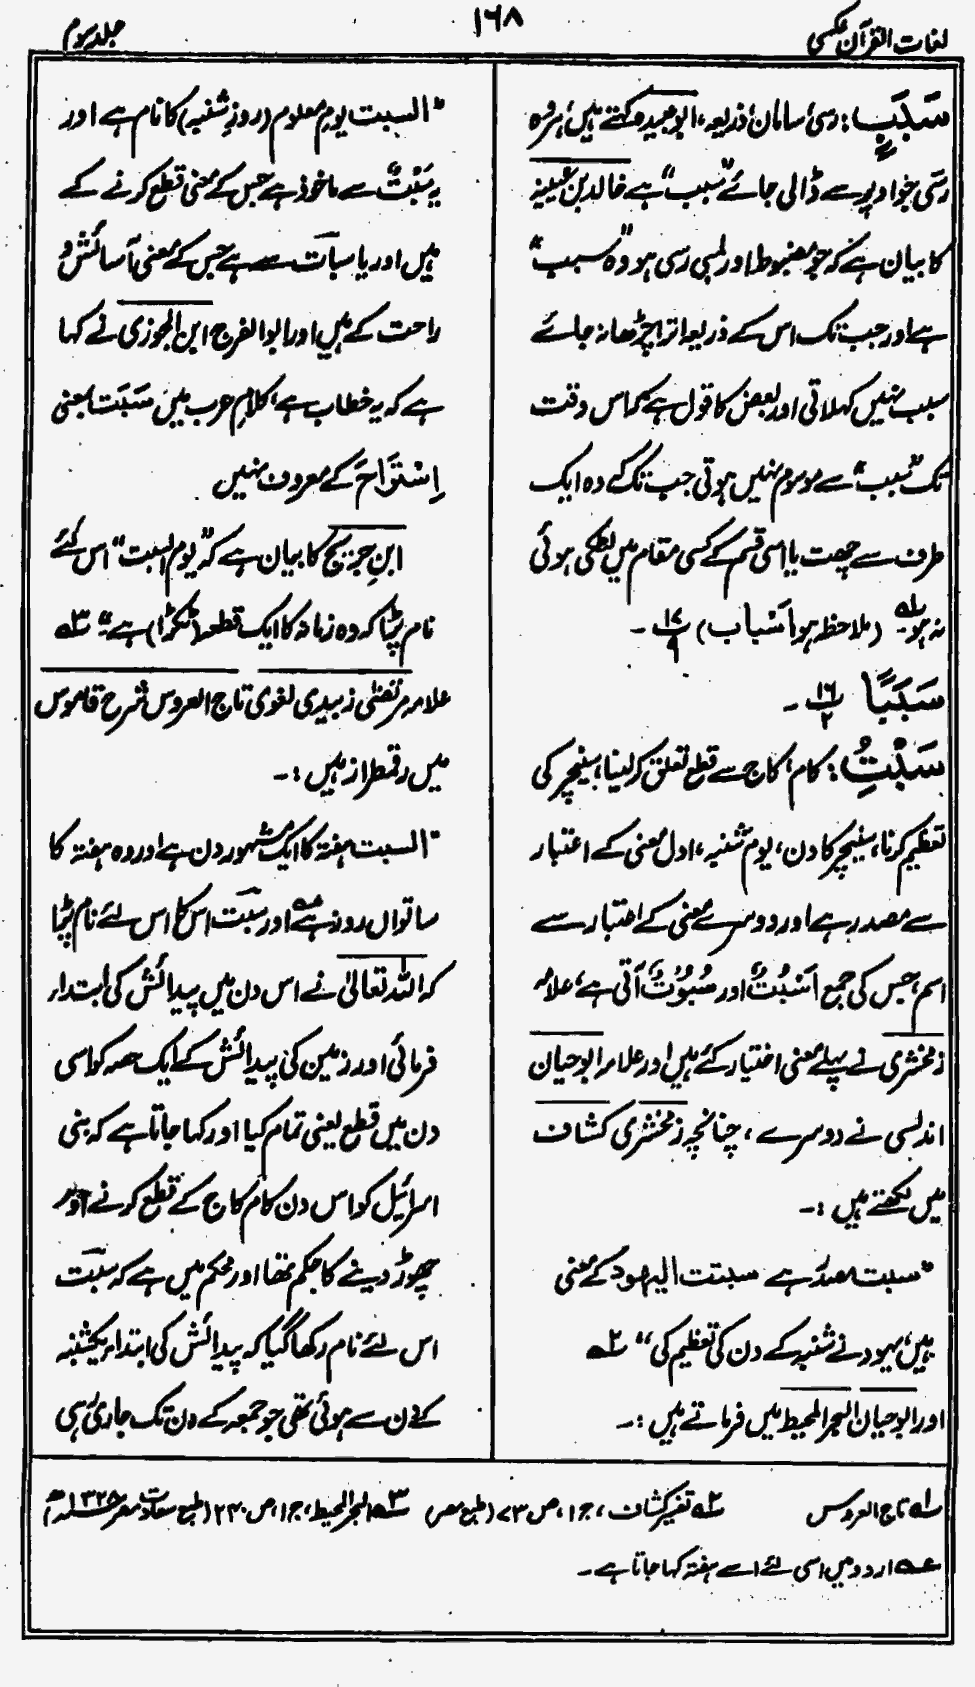 لغات القرآن عکسی
۱۶۸
جلد سوم
سَبَبٍ: رسی، سامان، ذریعہ، ابوعبیدہ کہتے ہیں، ہر وہ
رسی جو اوپر سے ڈالی جائے "سبب" ہے خالد بن
کا بیان ہے کہ جو مضبوط اور لمبی رسی ہو وہ "سبب"
ہے اور جب تک اس کے ذریعہ اترا چڑھا نہ جائے
سبب نہیں کہلاتی اور بعض کا قول ہے کہ اس وقت
تک "سبب" سے موسوم نہیں ہوتی جب تک کہ وہ ایک
طرف سے چھت یا اسی قسم کے کسی مقام میں لٹکی ہوئی
نہ ہو۔ ۱ (ملاحظہ ہو اَسْبَاب) ۱۷/۹ ۔
سَبَبًا ۱۶/۲ ۔
سَبْتُ: کام، کاج سے قطع تعلق کر لینا، سنیچر کی
تعظیم کرنا، سنیچر کا دن، یوم شنبہ، اول معنی کے اعتبار
سے مصدر ہے اور دوسرے معنی کے اعتبار سے
اسم، جس کی جمع اَسْبُتٌ اور سُبُوتٌ آتی ہے، علامہ
زمخشری نے پہلے معنی اختیار کئے ہیں اور علامہ ابوحیان
اندلسی نے دوسرے، چنانچہ زمخشری کشاف
میں لکھتے ہیں :۔
"سبت مصدر ہے سبتت الیہود کے معنی
ہیں، یہود نے شنبہ کے دن کی تعظیم کی" ۲
اور ابوحیان البحر المحیط میں فرماتے ہیں :۔
"السبت یوم معلوم (روز شنبہ) کا نام ہے اور
یہ سَبْتٌ سے ماخوذ ہے جس کے معنی قطع کرنے کے
ہیں اور یا سبات سے ہے جس کے معنی آسائش و
راحت کے ہیں اور ابوالفرج ابن الجوزی نے کہا
ہے کہ یہ خطاب ہے، کلام عرب میں سَبَتَ بمعنی
اِسْتَرَاحَ کے معروف نہیں
ابنِ جریج کا بیان ہے کہ "یوم السبت" اس لئے
نام پڑا کہ وہ زمانہ کا ایک قطعہ (ٹکڑا) ہے" ۳
علامہ مرتضیٰ زبیدی لغوی تاج العروس شرح قاموس
میں رقمطراز ہیں :۔
"السبت ہفتہ کا ایک مشہور دن ہے اور وہ ہفتہ کا
ساتواں روز ہے ۴ اور سبت اس کا اس لئے نام پڑا
کہ اللہ تعالیٰ نے اس دن میں پیدائش کی ابتدار
فرمائی اور زمین کی پیدائش کے ایک حصہ کو اسی
دن میں قطع یعنی تمام کیا اور کہا جاتا ہے کہ بنی
اسرائیل کو اس دن کام کاج کے قطع کرنے اور
چھوڑ دینے کا حکم تھا اور محکم میں ہے کہ سبت
اس لئے نام رکھا گیا کہ پیدائش کی ابتداء یکشنبہ
کے دن سے ہوئی تھی جو جمعہ کے دن تک جاری رہی
۱ تاج العروس ۲ تفسیر کشاف، ج ۱، ص ۷۳ (طبع مصر) ۳ البحر المحیط، ج ۱، ص ۲۴۰ (طبع سعادت مصر ۱۳۲۸ھ)
۴ اردو میں اسی لئے اسے ہفتہ کہا جاتا ہے ۔